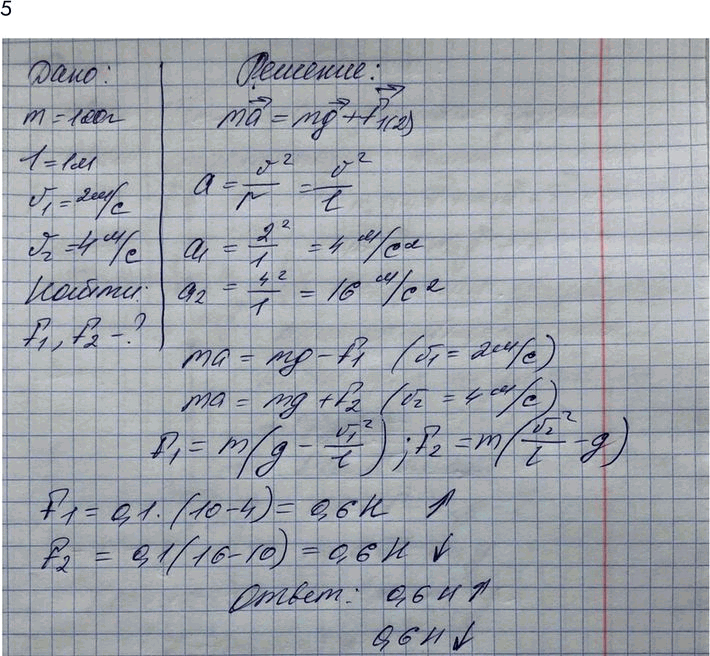 5
Дано:
m = 100г
l = 1м
v₁ = 2м/с
v₂ = 4 м/с
Найти:
F₁, F₂ - ?
Решение:
ma⃗ = mg⃗ + F⃗₁(₂)
a = v²/r = v²/l
a₁ = 2²/1 = 4 м/с²
a₂ = 4²/1 = 16 м/с²
ma = mg - F₁ (v₁ = 2м/с)
ma = mg + F₂ (v₂ = 4 м/с)
F₁ = m(g - v₁²/l); F₂ = m(v₂²/l - g)
F₁ = 0,1 · (10-4) = 0,6 Н ↑
F₂ = 0,1(16-10) = 0,6 Н ↓
Ответ: 0,6 Н ↑
0,6 Н ↓